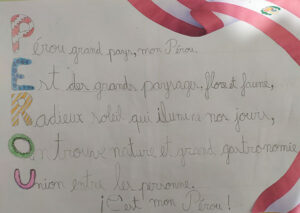 Pérou grand pays, mon Pérou.
Est des grands paysages, flore et faune,
Radieux soleil qui illumine nos jours,
On trouve nature et grand gastronomie
Union entre les personne.
¡C'est mon Pérou!